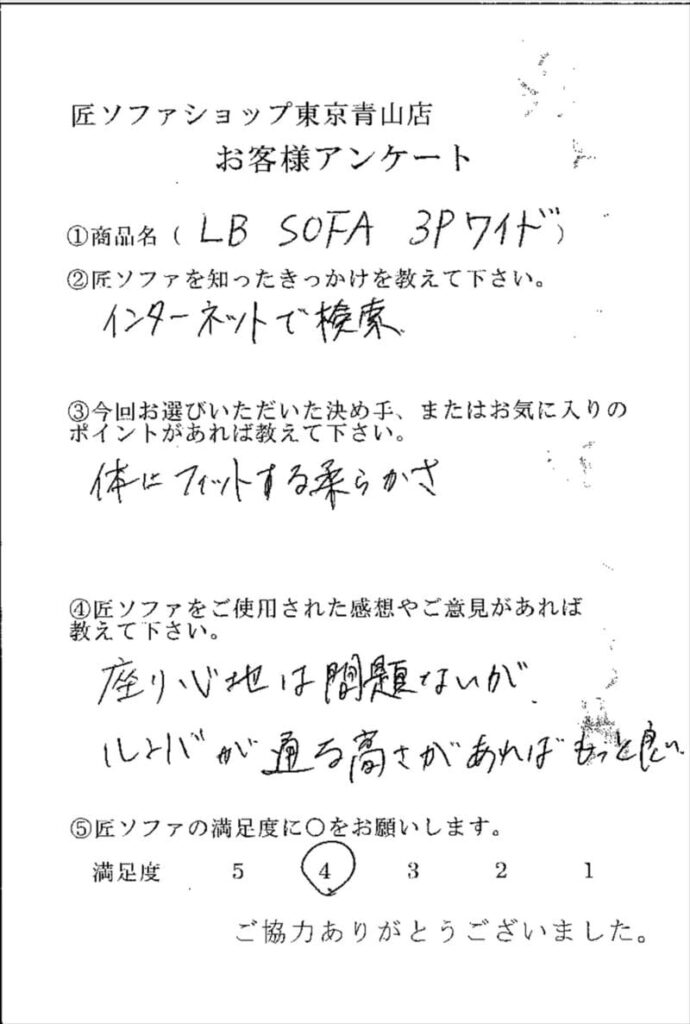 匠ソファショップ東京青山店
お客様アンケート
①商品名（ LB SOFA 3Pワイド ）
②匠ソファを知ったきっかけを教えて下さい。
インターネットで検索
③今回お選びいただいた決め手、またはお気に入りの
ポイントがあれば教えて下さい。
体にフィットする柔らかさ
④匠ソファをご使用された感想やご意見があれば
教えて下さい。
座り心地は問題ないが、
ルンバが通る高さがあればもっと良い
⑤匠ソファの満足度に○をお願いします。
満足度 5 4 3 2 1
ご協力ありがとうございました。